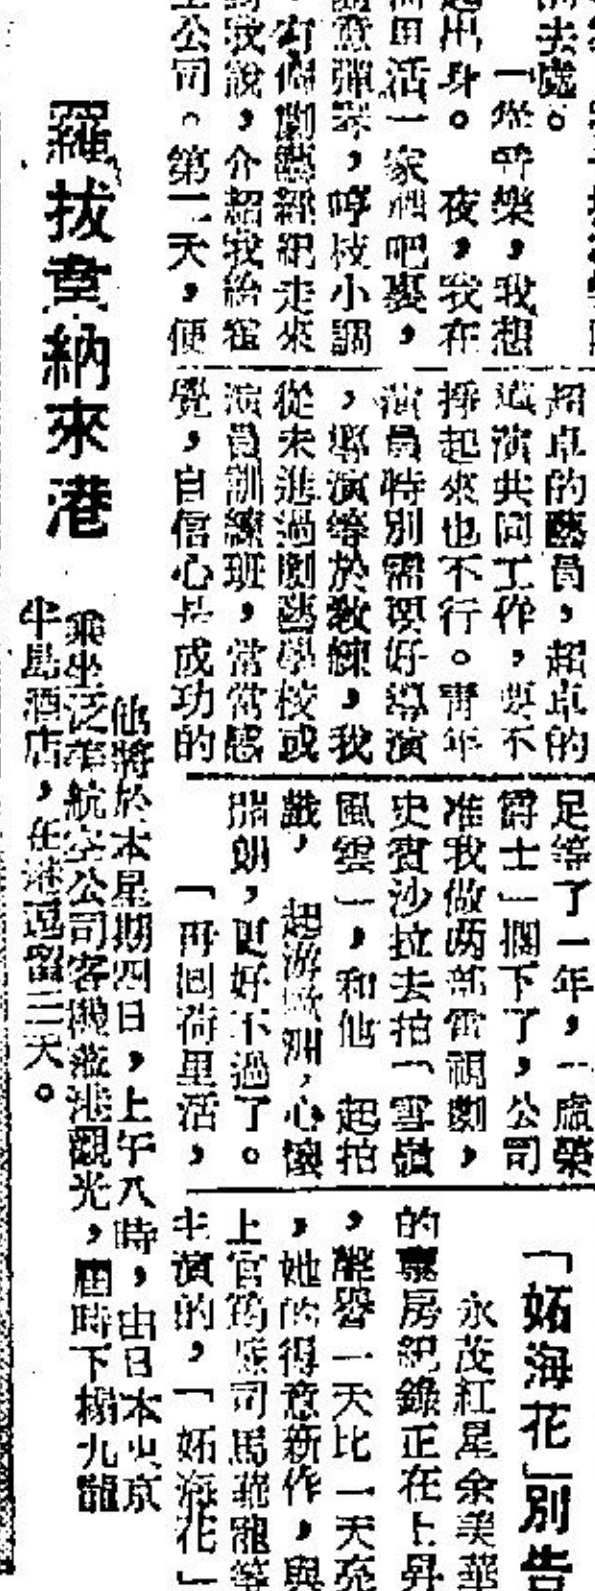 去處。
「從音樂，我想
出身。夜，我在
里活一家酒吧裏，
意彈琴，哼枝小調
有個劇藝經紀走來
我說，介紹我給霍
公司。第二天，便
超卓的藝員，超卓的
導演共同工作，要不
捧起來也不行。青年
演員特別需要好導演
，導演等於教練，我
從未進過劇藝學校或
演員訓練班，常常感
覺，自信心是成功的
足等了一年，「盧榮
爵士」擱下了，公司
准我做两部電視劇，
史賓沙拉去拍「雪嶺
風雲」，和他 起拍
戲， 起游歐洲，心懷
開朗，更好不過了。
「再回荷里活，
「妬海花」別告
永茂紅星余美華
的票房紀錄正在上昇
，聲譽一天比一天亮
，她的得意新作，與
上官筠慧司馬華龍等
主演的，「妬海花」
羅拔韋納來港
他將於本星期四日，上午八時，由日本東京
乘坐泛美航空公司客機蒞港觀光，屆時下榻九龍
半島酒店，在港逗留三天。